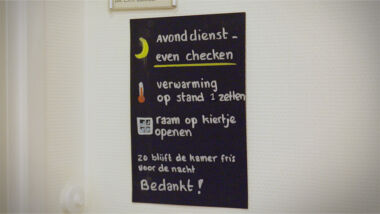 Avonddienst -
even checken
verwarming
op stand 1 zetten
raam op kiertje
openen
zo blijft de kamer fris
voor de nacht
Bedankt!